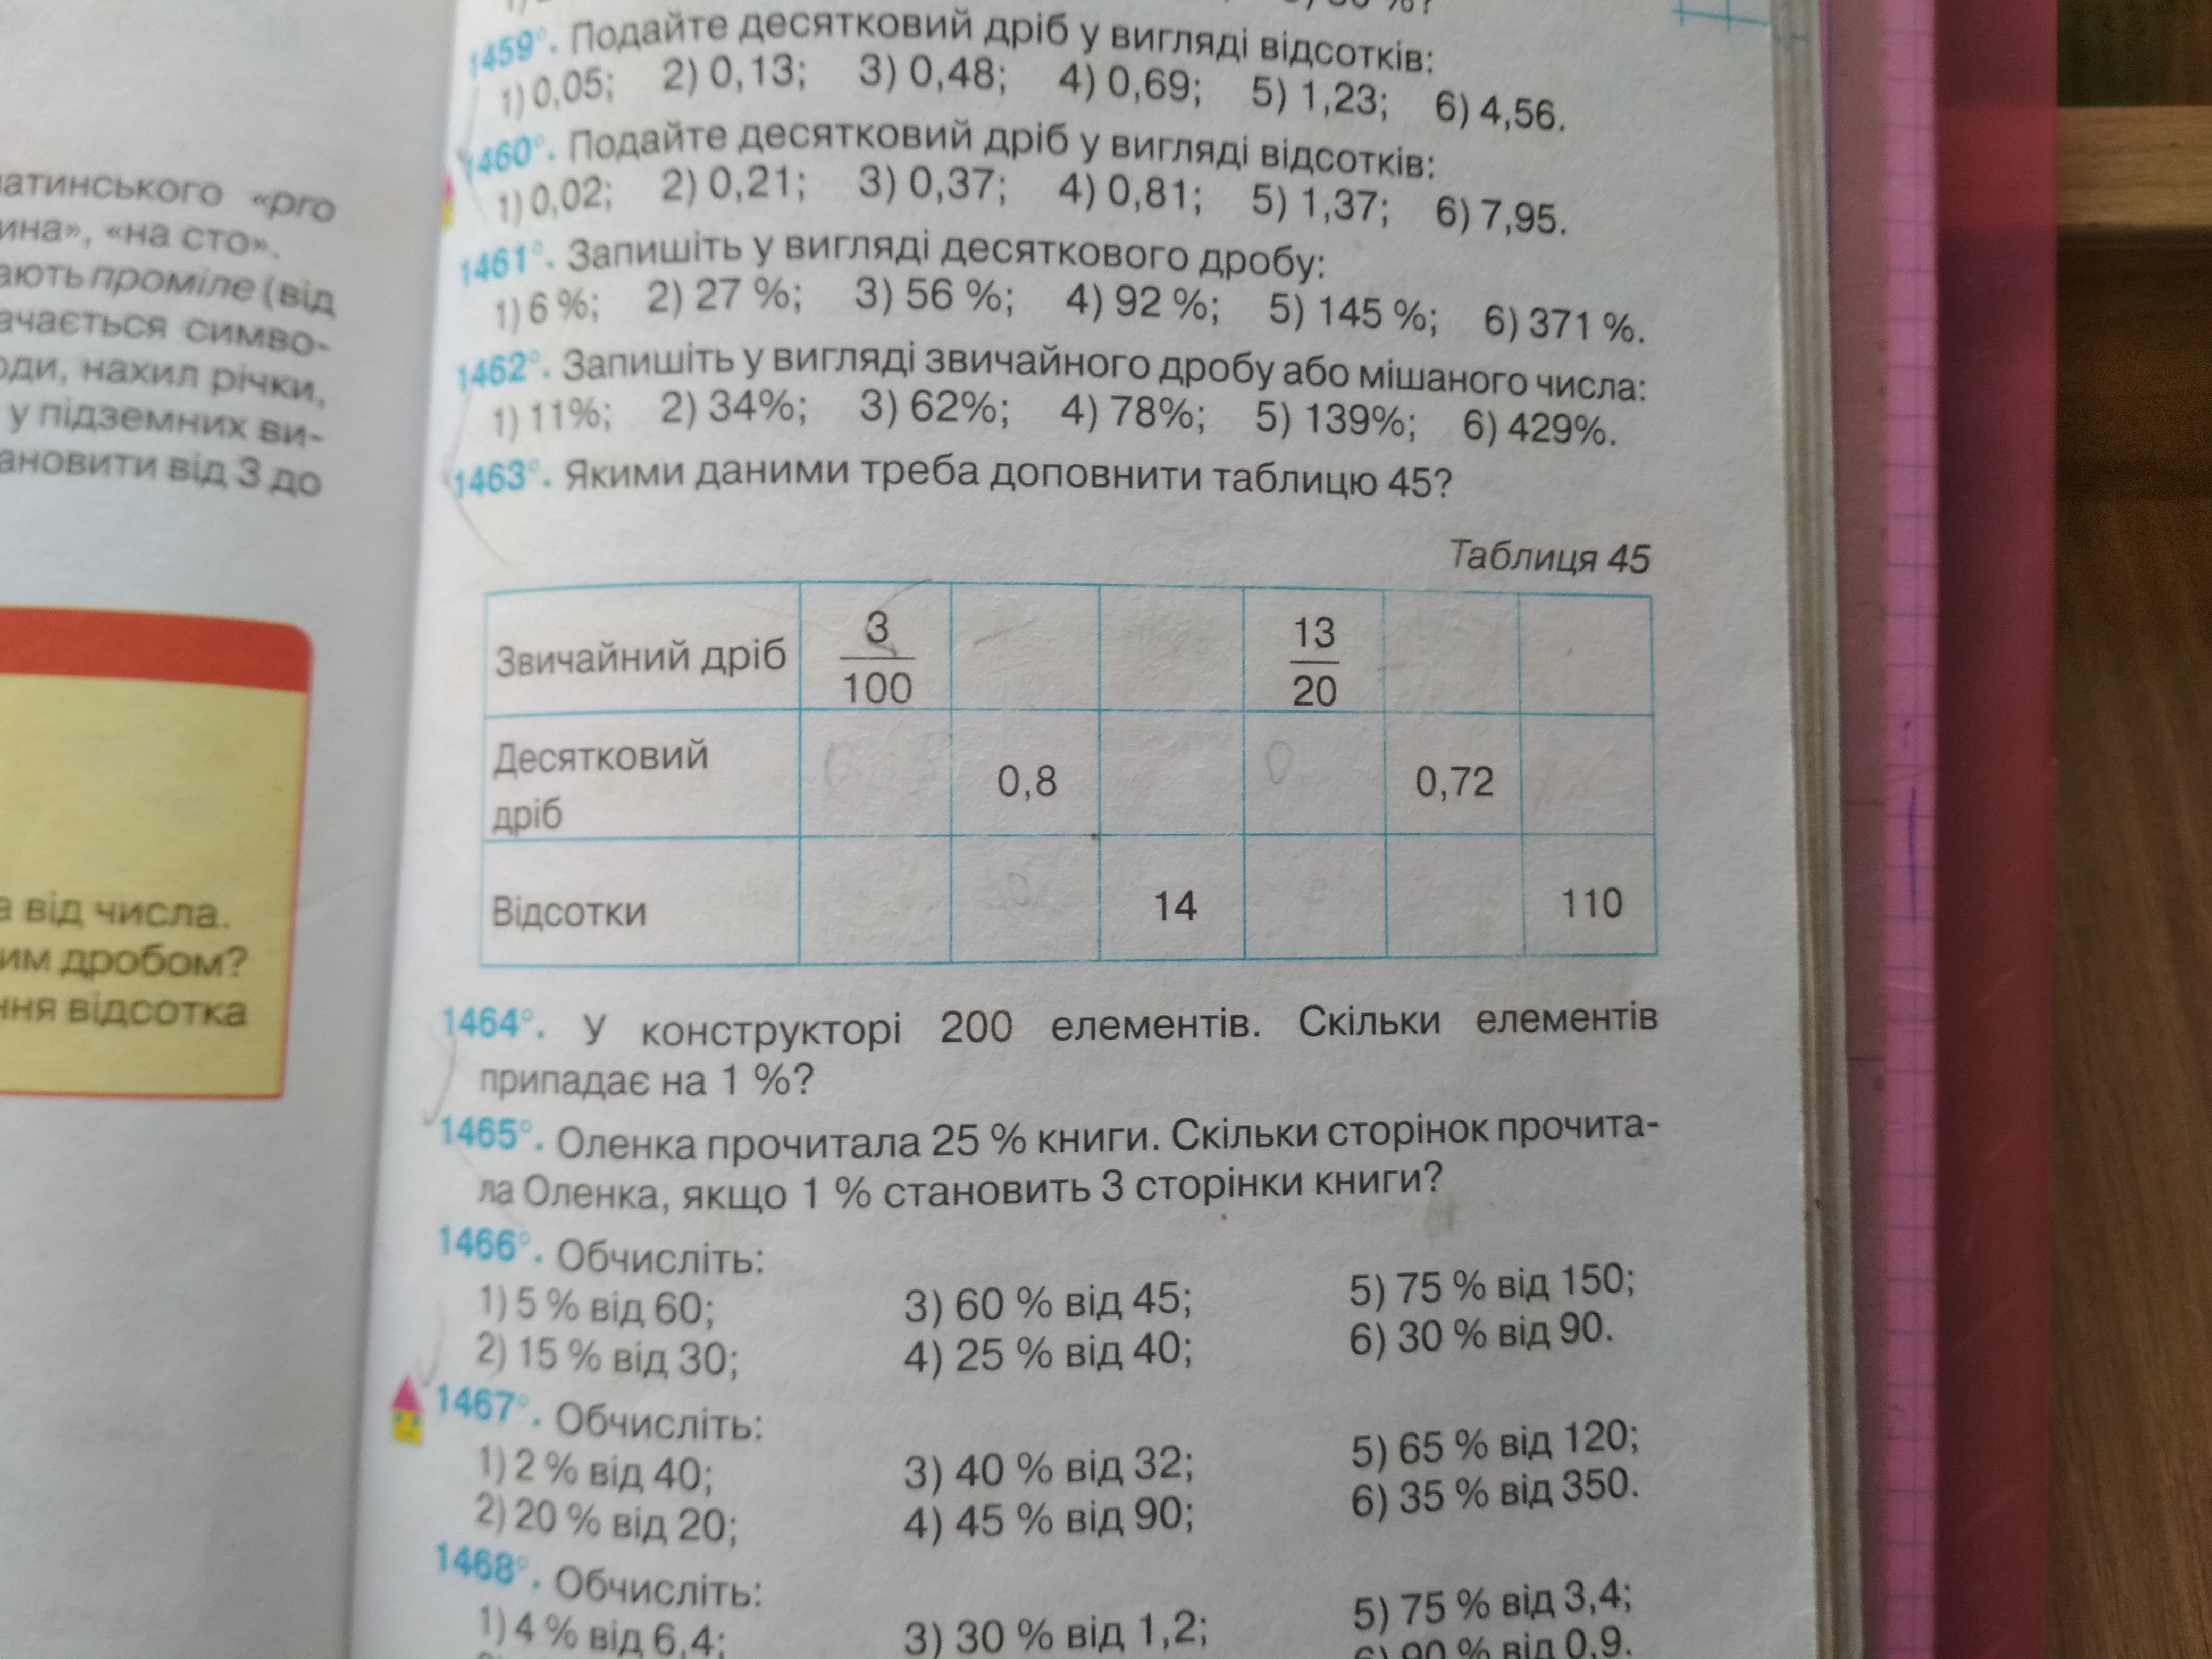 атинського «pro
ина», «на сто».
ають проміле (від
ачається симво-
оди, нахил річки,
у підземних ви-
ановити від 3 до
а від числа.
им дробом?
ння відсотка
1459°. Подайте десятковий дріб у вигляді відсотків:
1) 0,05; 2) 0,13; 3) 0,48; 4) 0,69; 5) 1,23; 6) 4,56.
1460°. Подайте десятковий дріб у вигляді відсотків:
1) 0,02; 2) 0,21; 3) 0,37; 4) 0,81; 5) 1,37; 6) 7,95.
1461°. Запишіть у вигляді десяткового дробу:
1) 6 %; 2) 27 %; 3) 56 %; 4) 92 %; 5) 145 %; 6) 371 %.
1462°. Запишіть у вигляді звичайного дробу або мішаного числа:
1) 11%; 2) 34%; 3) 62%; 4) 78%; 5) 139%; 6) 429%.
1463°. Якими даними треба доповнити таблицю 45?
Таблиця 45
Звичайний дріб 3/100 13/20
Десятковий
дріб 0,8 0,72
Відсотки 14 110
1464°. У конструкторі 200 елементів. Скільки елементів
припадає на 1 %?
1465°. Оленка прочитала 25 % книги. Скільки сторінок прочита-
ла Оленка, якщо 1 % становить 3 сторінки книги?
1466°. Обчисліть:
1) 5 % від 60; 3) 60 % від 45; 5) 75 % від 150;
2) 15 % від 30; 4) 25 % від 40; 6) 30 % від 90.
1467°. Обчисліть:
1) 2 % від 40; 3) 40 % від 32; 5) 65 % від 120;
2) 20 % від 20; 4) 45 % від 90; 6) 35 % від 350.
1468°. Обчисліть:
1) 4 % від 6,4; 3) 30 % від 1,2; 5) 75 % від 3,4;
6) 90 % від 0,9.